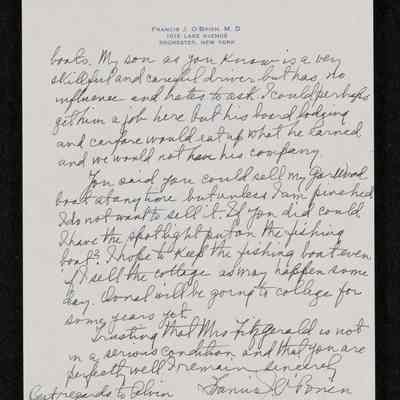 FRANCIS J. O'BRIEN, M. D.
1015 LAKE AVENUE
ROCHESTER, NEW YORK
boats. My son as you know is a very
skillful and careful driver but has no
influence and hates to ask. I could perhaps
get him a job here but his board lodging
and carfare would eat up what he earned
and we would not have his company.
You said you could sell my Gar Wood
boat at anytime but unless I am pinched
I do not want to sell it. If you did could
I have the spotlight put on the fishing
boat? I hope to keep the fishing boat even
if I sell the cottage as may happen some
day. Donal will be going to college for
some years yet.
Trusting that Mrs Fitzgerald is not
in a serious condition, and that you are
perfectly well I remain sincerely
Best regards to Calvin Francis J O'Brien